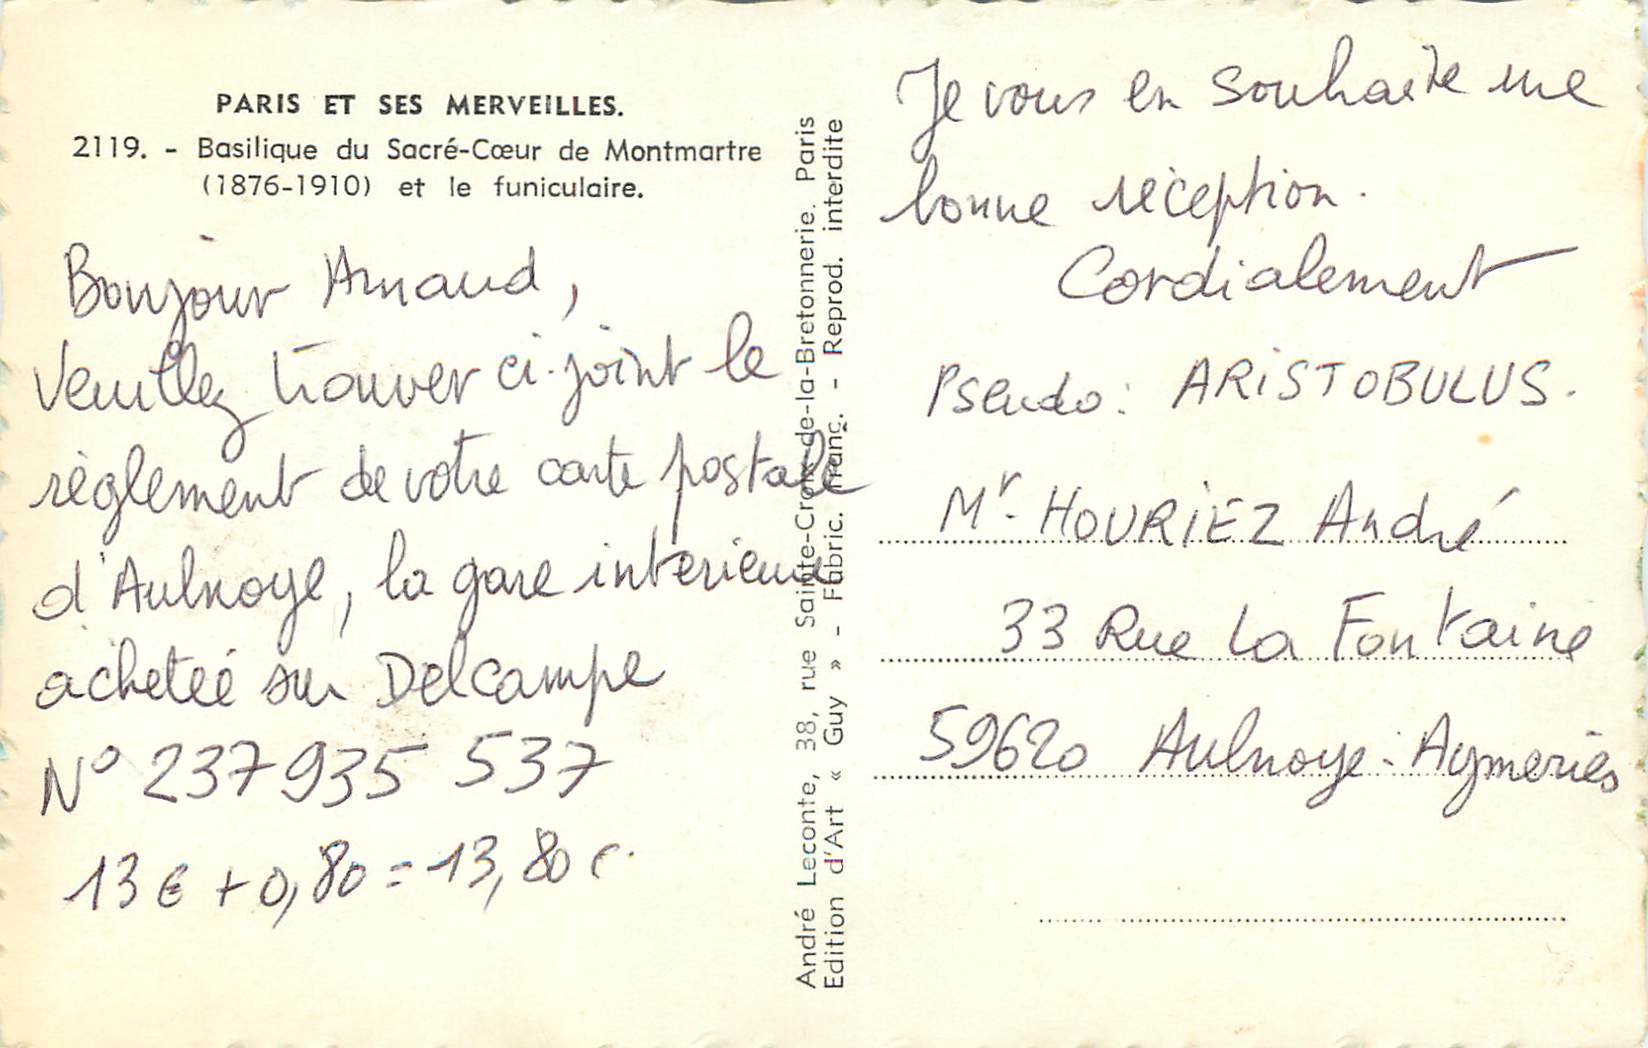 PARIS ET SES MERVEILLES.
2119. - Basilique du Sacré-Cœur de Montmartre
(1876-1910) et le funiculaire.
Bonjour Arnaud,
Veuillez trouver ci-joint le
règlement de votre carte postale
d'Aulnoye, la gare intérieure
achetée sur Delcampe
N° 237935 537
13 € + 0,80 = 13,80 €.
André Leconte, 38, rue Sainte-Croix-de-la-Bretonnerie. Paris
Edition d'Art « Guy » - Fabric. Franç. - Reprod. interdite
Je vous en souhaite une
bonne réception.
Cordialement
Pseudo: ARiSTOBULUS.
Mr. HOURiEZ André
33 Rue La Fontaine
59620 Aulnoye-Aymeries